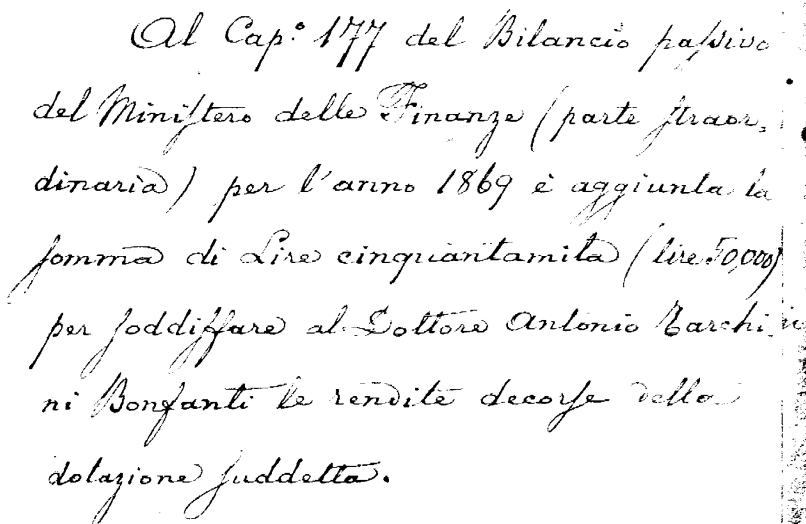 Al Cap.º 177 del Bilancio passivo
del Ministero delle Finanze (parte straor-
dinaria) per l'anno 1869 è aggiunta la
somma di Lire cinquantamila (lire 50,000)
per soddisfare al Dottore Antonio Tarchi-
ni Bonfanti le rendite decorse della
dotazione suddetta.